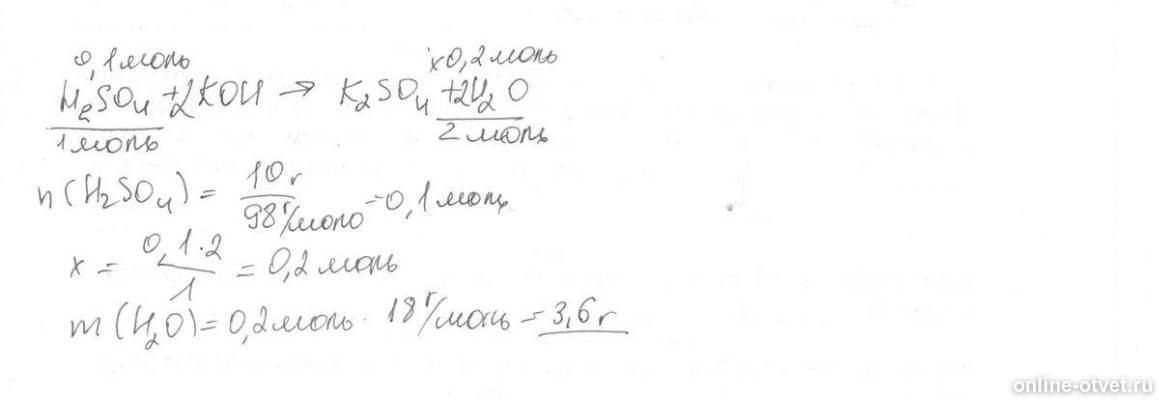 0,1 моль x 0,2 моль
H₂SO₄ + 2KOH → K₂SO₄ + 2H₂O
1 моль 2 моль
n(H₂SO₄) = 10 г / 98 г/моль = 0,1 моль
x = 0,1 · 2 / 1 = 0,2 моль
m(H₂O) = 0,2 моль · 18 г/моль = 3,6 г
online-otvet.ru